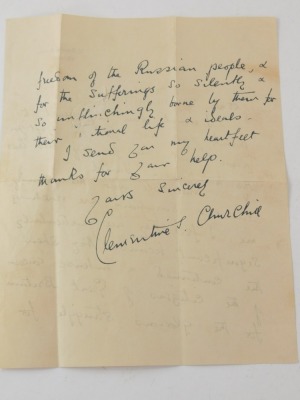 freedom of the Russian people, &
for the sufferings so silently &
so unflinchingly borne by them for
their national life & ideals.
I send you my heartfelt
thanks for your help.
Yours sincerely
Clementine S. Churchill